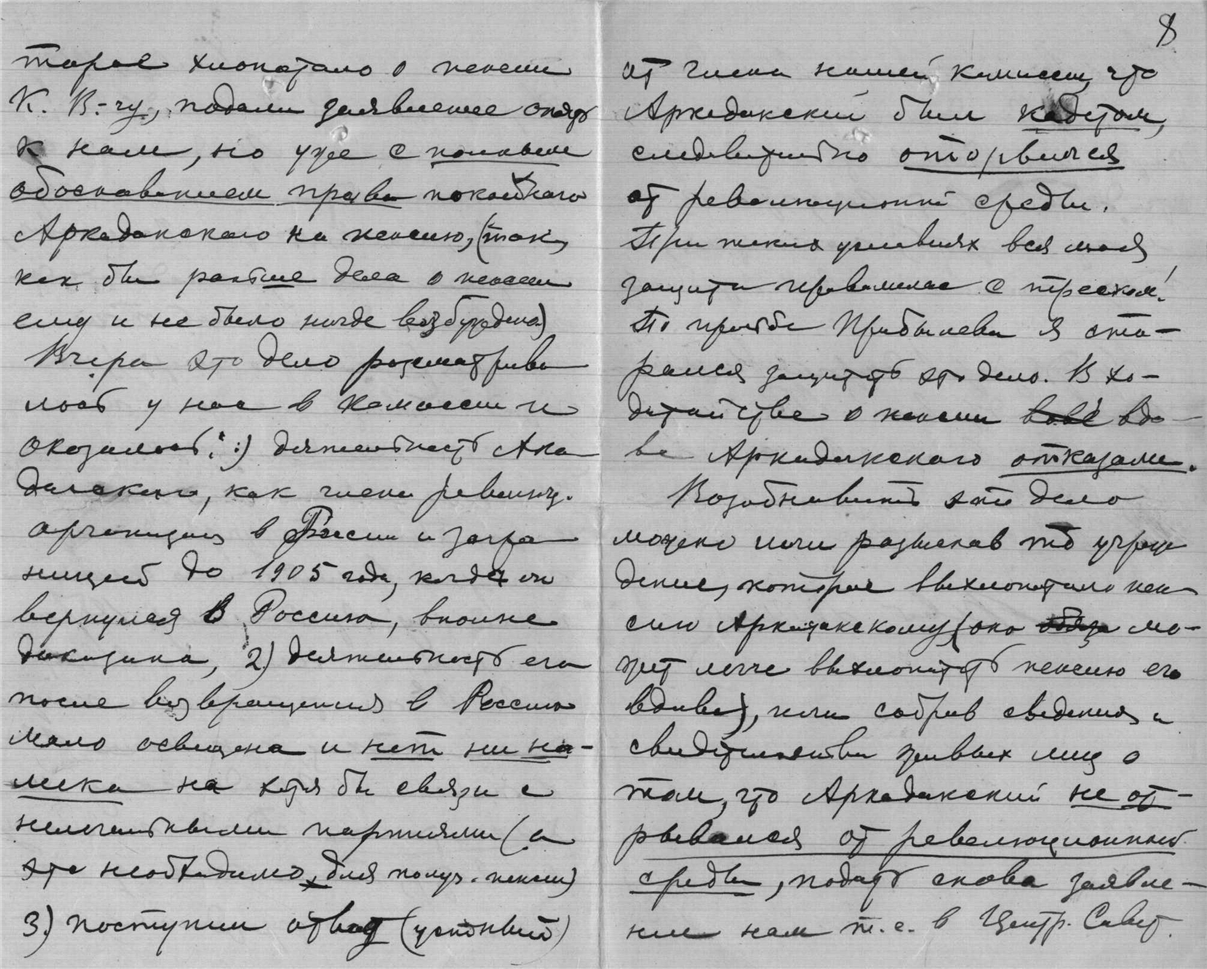 торое хлопотало о пенсии
К. В-чу, подали заявление опять
к нам, но уже с полным
обоснованием права покойного
Аркаданского на пенсию, (так,
как бы раньше дела о пенсии
ему и не было нигде возбуждено)
Вчера это дело рассматрива
лось у нас в комиссии и
оказалось: 1) деятельность Арка
данского, как члена революц.
организации в России и загра
ницей до 1905 года, когда он
вернулся в Россию, вполне
доказана, 2) деятельность его
после возвращения в Россию
мало освещена и нет ни на-
мека на хотя бы связи с
нелегальными партиями (а
это необходимо, для получ. пенсии)
3) поступил отвод (устный)
8
от члена нашей комиссии, что
Аркаданский был кадетом,
следовательно оторвался
от революционной среды.
При таких условиях вся моя
защита провалилась с треском!
По просьбе Прибылева я ста-
рался защитить это дело. В хо-
датайстве о пенсии вдо-
ве Аркаданского отказали.
Возобновить это дело
можно или разыскав то учреж
дение, которое выхлопотало пен
сию Аркаданскому (оно мо-
жет легче выхлопотать пенсию его
вдове), или собрав сведения и
свидетельства живых лиц о
том, что Аркаданский не от-
рывался от революционной
среды, подать снова заявле-
ние нам т.е. в Центр. Совет.